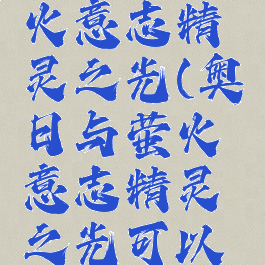 火意志精
灵之先(奥
日与萤火
意志精灵
之先可以